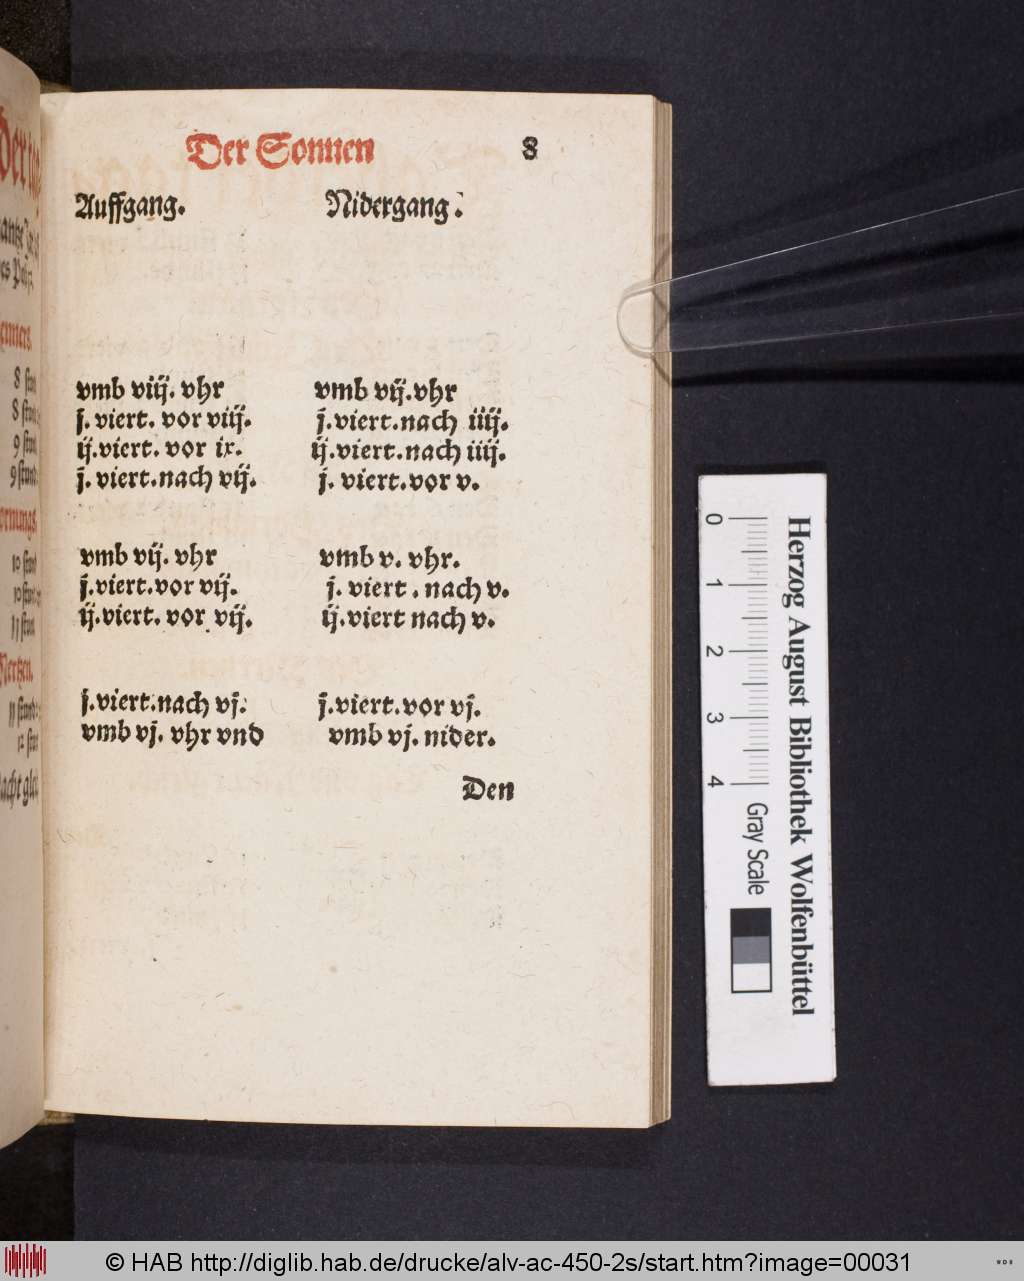 Der Sonnen 8
Auffgang. Nidergang.
vmb viij. vhr vmb vij.vhr
j. viert. vor viij. j.viert.nach iiij.
ij.viert. vor ix. ij.viert.nach iiij.
j. viert.nach vij. j. viert.vor v.
vmb vij. vhr vmb v. vhr.
j.viert.vor vij. j. viert. nach v.
ij.viert. vor vij. ij.viert nach v.
j.viert.nach vj. j.viert.vor vj.
vmb vj. vhr vnd vmb vj. nider.
Den
8
8
9
9
10
10
0 1 2 3 4
Gray Scale
Herzog August Bibliothek Wolfenbüttel
© HAB http://diglib.hab.de/drucke/alv-ac-450-2s/start.htm?image=00031